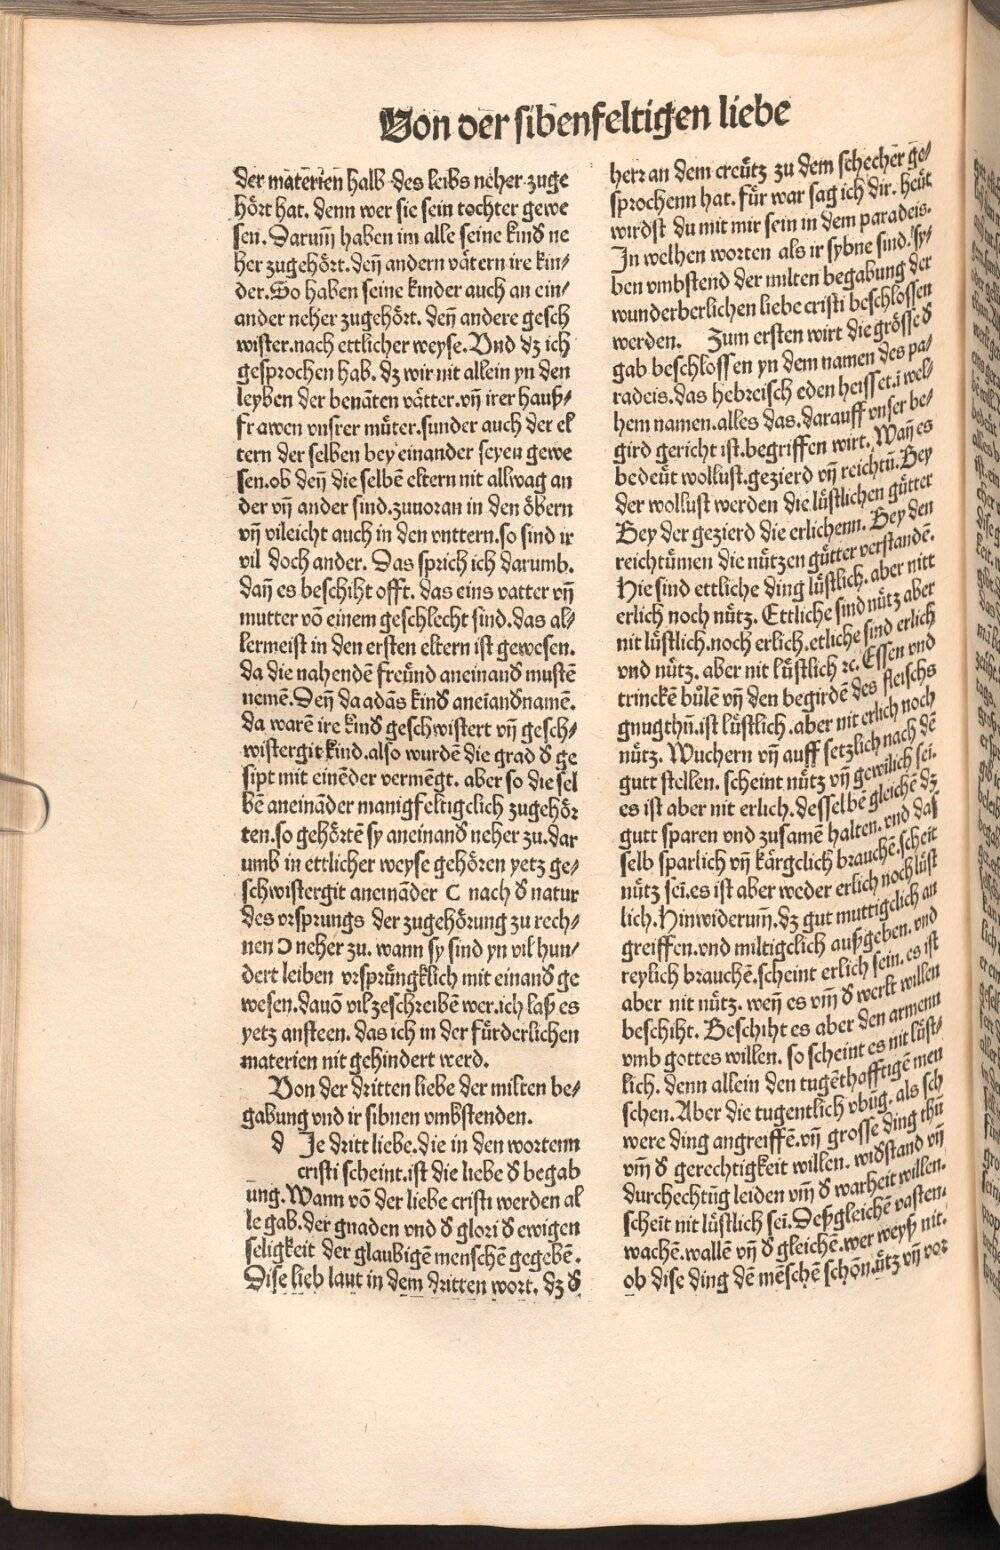 Von der sibenfeltigen liebe
der materien halb des leibs neher zuge
hört hat. denn wer sie sein tochter gewe
sen. Darum̄ haben im alle seine kind ne
her zugehört. den̄ andern vätern ire kin⸗
der. So haben seine kinder auch an ein⸗
ander neher zugehört. den̄ andere gesch
wister. nach ettlicher weyse. Vnd dz ich
gesprochen hab. dz wir nit allein yn den
leyben der benāten vätter. vn̄ irer hauß⸗
frawen vnsrer müter. sunder auch der el
tern der selben bey einander seyen gewe
sen. ob den̄ die selbē eltern nit allwag an
der vn̄ ander sind. zuuoran in den öbern
vn̄ vileicht auch in den vnttern. so sind ir
vil doch ander. Das sprich ich darumb.
dan̄ es beschiht offt. das eins vatter vn̄
mutter vō einem geschlecht sind. das al⸗
lermeist in den ersten eltern ist gewesen.
da die nahendē freünd aneinand mustē
nemē. Den̄ da adās kind aneīandnamē.
da warē ire kind geschwistert vn̄ gesch⸗
wistergit kind. also wurdē die grad d̕ ge
sipt mit einēder vermēgt. aber so die sel
bē aneināder manigfeltigclich zugehör
ten. so gehörtē sy aneinand neher zu. dar
umb in ettlicher weyse gehören yetz ge⸗
schwistergit aneināder C nach d̕ natur
des vrsprungs der zugehörung zu rech⸗
nen Ɔ neher zu. wann sy sind yn vil hun⸗
dert leiben vrsprüngklich mit einand ge
wesen. dauō vil zeschreibē wer. ich laß es
yetz ansteen. das ich in der fürderlichen
materien nit gehindert werd.
Von der dritten liebe der milten be⸗
gabung vnd ir sibnen vmbstenden.
d Je dritt liebe. die in den wortenn
cristi scheint. ist die liebe d̕ begab
ung. Wann vō der liebe cristi werden al
le gab. der gnaden vnd d̕ glori d̕ ewigen
seligkeit der glaubigē menschē gegebē.
Dise lieb laut in dem dritten wort. dz d̕
herr an dem creütz zu dem schecher ge⸗
sprochenn hat. für war sag ich dir. heüt
wirdst du mit mir sein in dem paradeis.
In welhen worten als ir sybne sind. sy⸗
ben vmbstend der milten begabung der
wunderberlichen liebe cristi beschlossen
werden. Zum ersten wirt die grösse d̕
gab beschlossen yn dem namen des pa⸗
radeis. das hebreisch eden heisset. ī wel⸗
hem namen. alles das. darauff vnser be⸗
gird gericht ist. begriffen wirt. Wan̄ es
bedeüt wollust. gezierd vn̄ reichtū. Bey
der wollust werden die lüstlichen gütter
Bey der gezierd die erlichenn. Bey den
reichtümen die nützen gütter verstandē.
Hie sind ettliche ding lüstlich. aber nitt
erlich noch nütz. Ettliche sind nütz aber
nit lüstlich. noch erlich. etliche sind erlich
vnd nütz. aber nit lüstlich ꝛc. Essen vnd
trinckē bülē vn̄ den begirdē des fleischs
gnugthū. ist lüstlich. aber nit erlich noch
nütz. Wuchern vn̄ auff setzlich nach dē
gutt stellen. scheint nütz vn̄ gewilich sei.
es ist aber nit erlich. desselbē gleichē dz
gutt sparen vnd zusamē halten. vnd das
selb sparlich vn̄ kärgelich brauchē. scheīt
nütz sei. es ist aber weder erlich noch lüst
lich. Hinwiderum̄. dz gut muttigclich an
greiffen. vnd miltigclich außgeben. vnd
reylich brauchē. scheint erlich sein. es ist
aber nit nütz. wen̄ es vm̄ d̕ werlt willen
beschiht. Beschiht es aber den armenn
vmb gottes willen. so scheint es nit lüst⸗
lich. denn allein den tugēthafftigē men
schen. Aber die tugentlich vbūg. als sch
were ding angreiffē. vn̄ grosse ding thū
vm̄ d̕ gerechtigkeit willen. widstand vn̄
durchechtūg leiden vm̄ d̕ warheit willen.
scheīt nit lüstlich sei. Deßgleichē vasten.
wachē. wallē vn̄ d̕ gleichē. wer weyß nit.
ob dise ding dē mēschē schön. nütz vn̄ vor